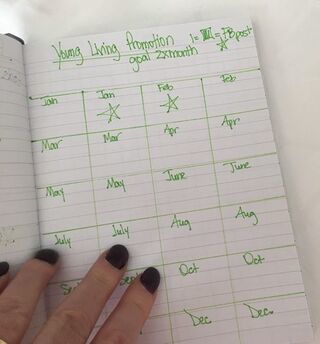 Young Living Promotion 1= = FB post
goal 2x month
Jan Jan Feb Feb
Mar Mar Apr Apr
May May June June
July July Aug Aug
Sept Oct Oct
Dec Dec